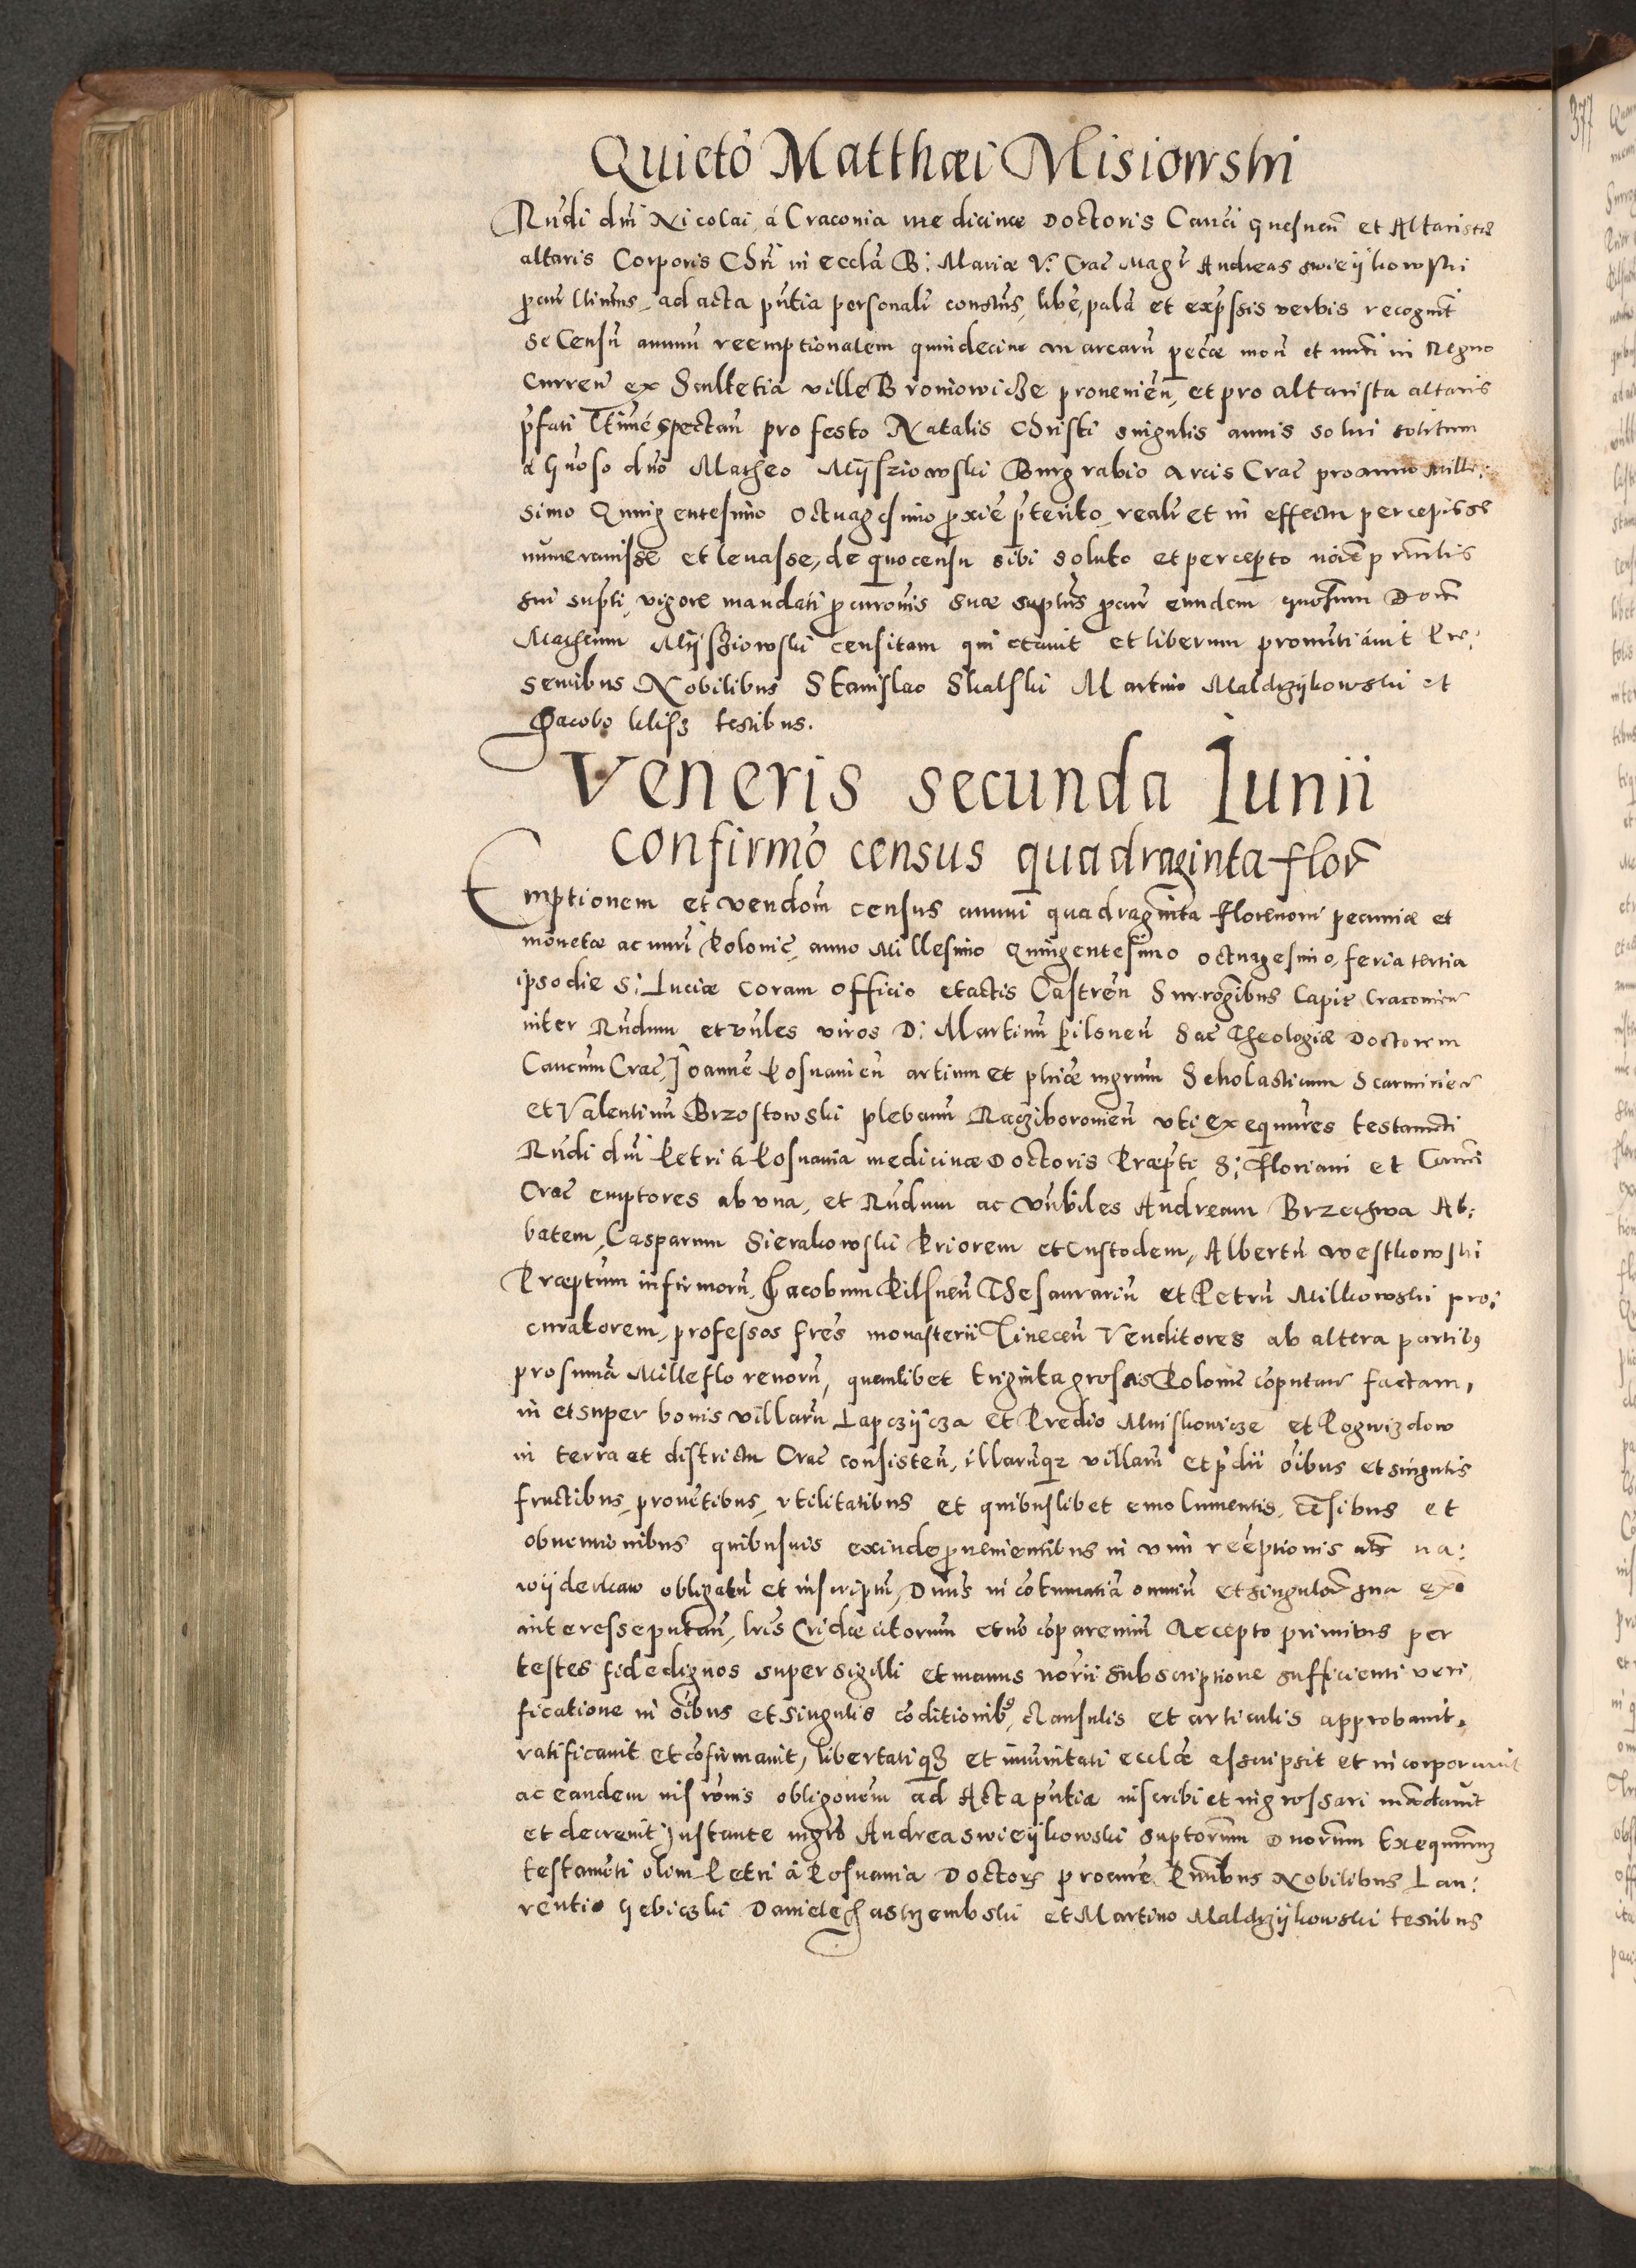 Quieto Matthæi Misiowski
Rñdi dni Nicolai á Craconia medicinæ Doctoris Canci gnesneñ et Altaristæ
altaris Corporis Chri in eccla B: Mariæ V: Crac̃ Magr̃ Andreas swieijkowski
ad acta pñtia personalr̃ constñs, libe, palã et exp̃ssis verbis recognit
se Censũ annuũ reemptionalem quindecim marcarũ pecæ mon et nuri in Regno
Curreñ ex Scultetia villę Bronowicze provenieñ, et pro altarista altaris
p̃fati spectañ pro festo Natalis Christi singulis annis solui solitum
á Gnoso dno Matheo Mijsziowski Burgrabio Arcis Crac̃ pro anno Mille:
simo Quingentesimo Octuagesimo proxie p̃terito, realr̃ et in effectu percepisse
numerauisse et leuasse, de quo censu sibi soluto et percepto noie prñcilis
sui supti, vigore mandati procuronis suæ suptus procur eundem gnosum Dom
Matheum Mijsziowski censitam quietauit et liberum pronunciauit Præ:
sentibus Nobilibus Stanislao Skalski Martino Maldrzijkowski et
Jacobo klisz testibus.
Veneris secunda Iunii
Confirmo census quadraginta flor̃
Emptionem et vendom̃ census annui quadraginta florenorũ pecuniæ et
monetæ ac nuri Polonic̃, anno Millesimo Quingentesimo octuagesimo, feria tertia
ipso die S: Luciæ coram officio et actis Castreñ Surrogibus Capit̃ Cracouieñ
inter Rñdum et vñles viros D: Martinũ Pilsneñ Sac̃ Theologiæ Doctorem
Cancum Crac̃, Joannẽ Posnanieñ artium et phiæ mgrum Scholasticum Scarmirieñ
et Valentinũ Brzostowski plebanũ Racziborouieñ vti exequutres testamti
Rñdi dni Petri á Posnania medicinæ Doctoris Præpti S: Floriani et Canci
Crac̃ emptores ab vna, et Rñdum ac vñbiles Andream Brzechwa Ab:
batem, Casparum Sierakowski Priorem et Custodem, Albertũ Westkowski
Præptum infirmorũ, Jacobum Pilsneñ Thesaurariũ et Petrũ Milkowski pro:
curatorem, professos fres monasterii Tineceñ Venditores ab altera partibꝯ
pro sum̃a Mille florenorũ, quemlibet triginta grossis Polonic̃ cõputañ factam,
in et super bonis villarũ Lapczijcza et Predio Muiskowicze et Pogwizdow
in terra et districtu Crac̃ consisteñ, illarumq̃ villarũ et p̃dii oĩbus et singulis
fructibus, prouẽtibus, vtilitatibus et quibuslibet emolumentis, cẽsibus et
obuentionibus quibusuis exinde prouenientibus in vim reẽptionis als na:
wijderkaw obligatũ et inscriptũ, Dnus in cõtumatiã omniũ et singulor̃ sua exo
interesse putañ, lris Cridæ citorum et nõ cõparentiũ Recepto primitus per
testes fide dignos super sigilli et manus norii subscriptione sufficienti veri
ficatione in oĩbus et singulis cõditionibꝯ, clausulis et articulis approbauit,
ratificauit et cõfirmauit, libertatiq̃ et imũnitati ecclæ asscripsit et incorporauit
ac eandem inscrõnis obligonem̃ ad Acta pñtia inscribi et ingrossari mãdauit
et decreuit Instante mgro Andrea swieijkowski suptorum Dnorum Exequutrum
testamẽti olim Petri á Posnania Doctoris procure. Prñtibus Nobilibus Lau:
rentio Gebiczki Daniele Jastrzembski et Martino Maldrzijkowski testibus
377